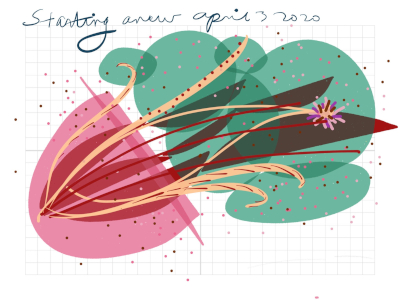 Starting anew april 3 2020